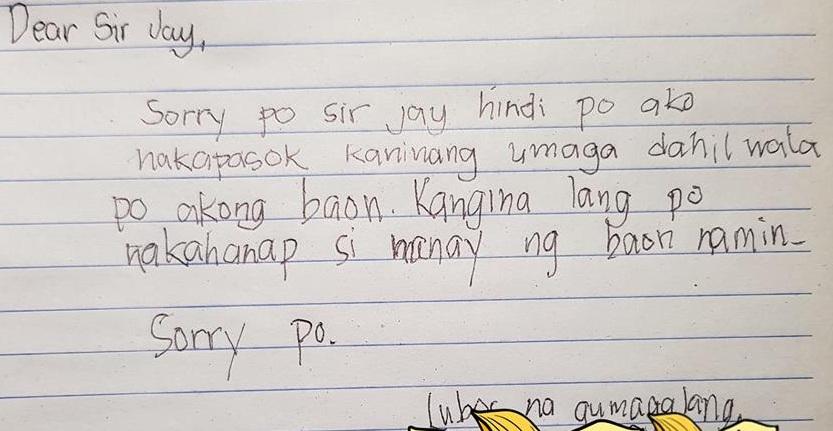 Dear Sir Jay,
Sorry po sir jay hindi po ako
nakapasok kaninang umaga dahil wala
po akong baon. Kangina lang po
nakahanap si nanay ng baon namin-
Sorry po.
lubos na gumagalang,